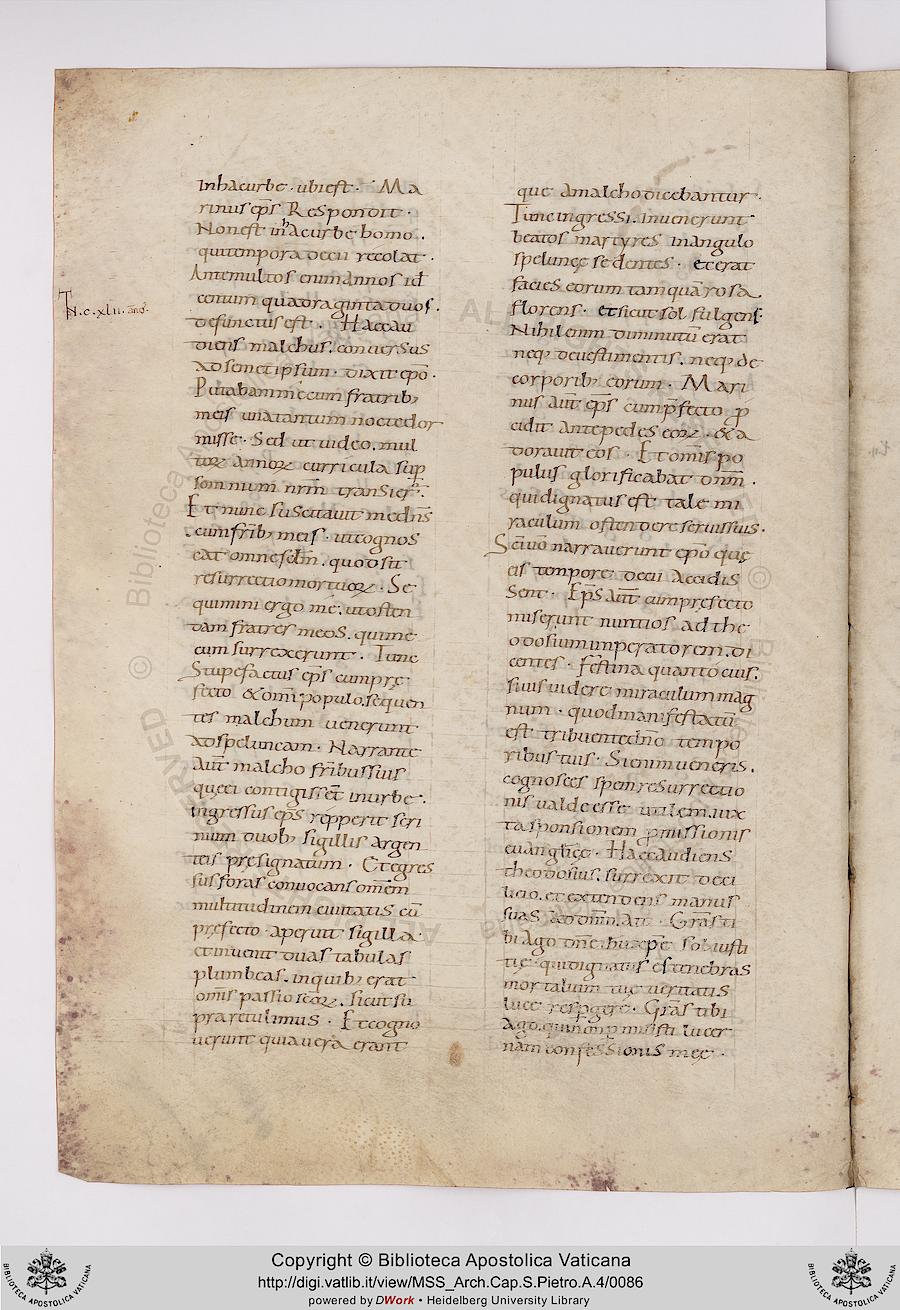 inhacurbe · ubiest · Ma
rinus ep̅s Respondit ·
Nonest inhacurbe homo ·
quitempora decii recolat ·
Antemultos enimannos id
cottum quadragintaduos ·
defunctus est · Haecau
diens malchus · conuersus
adsemetipsum · dixit ep̅o ·
Putabammecumfratrib;
meis unatantum noctedor
misse · Sed ut uideo · mul
torꝝ annorꝝ curricula sup̅
somnium nr̅m transier̅ ·
Et nunc suscitauit medn̅s
cumfrib; meis · utcognos
cat omnesclm̅ · quodsit
resurrectiomortuorꝝ · Se
quimini ergo me · utosten
dam fratres meos · quime
cum surrexerunt · Tunc
Stupefactus ep̅s cumprę
fecto & omi̅ populo · sequen
tes malchum uenerunt
adspeluncam · Narrante
aut̅ malcho fri̅bussuis
quęei contigisse̅t inurbe ·
ingressus ep̅s repperit scri
nium duob; sigillis argen
teis pręsignatum · Etegres
sus foras conuocans om̅em
multitudinem ciuitatis cu̅
pręfecto · aperuit sigilla
etinuenit duas tabulas
plumbeas · inquib; erat
omi̅s passio sc̅orꝝ · sicut su
pra retulimus · Etcogno
uerunt quiauera erant
N · c · xlii · an̅os ·
quę amalchodicebantur ·
Tuncingressi · inuenerunt
beatos martyres inangulo
speluncę sedentes · eterat
facies eorum tamqua̅ rosa
florens · etsicut sol fulgens ·
Nihil enim diminutu̅ erat
neq; deuestimentis · neq; de
corporib; eorum · Mari
nus aut̅ ep̅s cump̅fecto p̅
cidit antepedes eorꝝ · & a
dorauit eos · Et omi̅s po
pulus glorificabat dn̅m ·
quidignatus est tale mi
raculum ostendere seruissuis ·
Sc̅iuo̅ narrauerunt ep̅o quę
eis tempore decii accidis
sent · Ep̅s aut̅ cumpręfecto
miserunt nuntios ad the
odosiumimperatorem · di
centes · festina quantocius ·
siuis uidere miraculum mag
num · quodmanifestatu̅
est tribuentedn̅o tempo
ribus tuis · Sienimueneris ·
cognosces spemresurrectio
nis ualde esse utilem · iux
ta sponsionem promissionis
euanglicę · Haecaudiens
theodosius · surrexit deci
licio · et extendens manus
suas addn̅m · ait · Gra̅s ti
bi ago dn̅e ih̅u xp̅e sol iusti
tię · quidignatus es tenebras
mortalium tuę ueritatis
luce respgere · Gra̅s tibi
ago · quinon pmisisti lucer
nam confessionis meę ·
Copyright © Biblioteca Apostolica Vaticana
http://digi.vatlib.it/view/MSS_Arch.Cap.S.Pietro.A.4/0086
powered by DWork • Heidelberg University Library
BIBLIOTECA APOSTOLICA VATICANA
BIBLIOTECA APOSTOLICA VATICANA